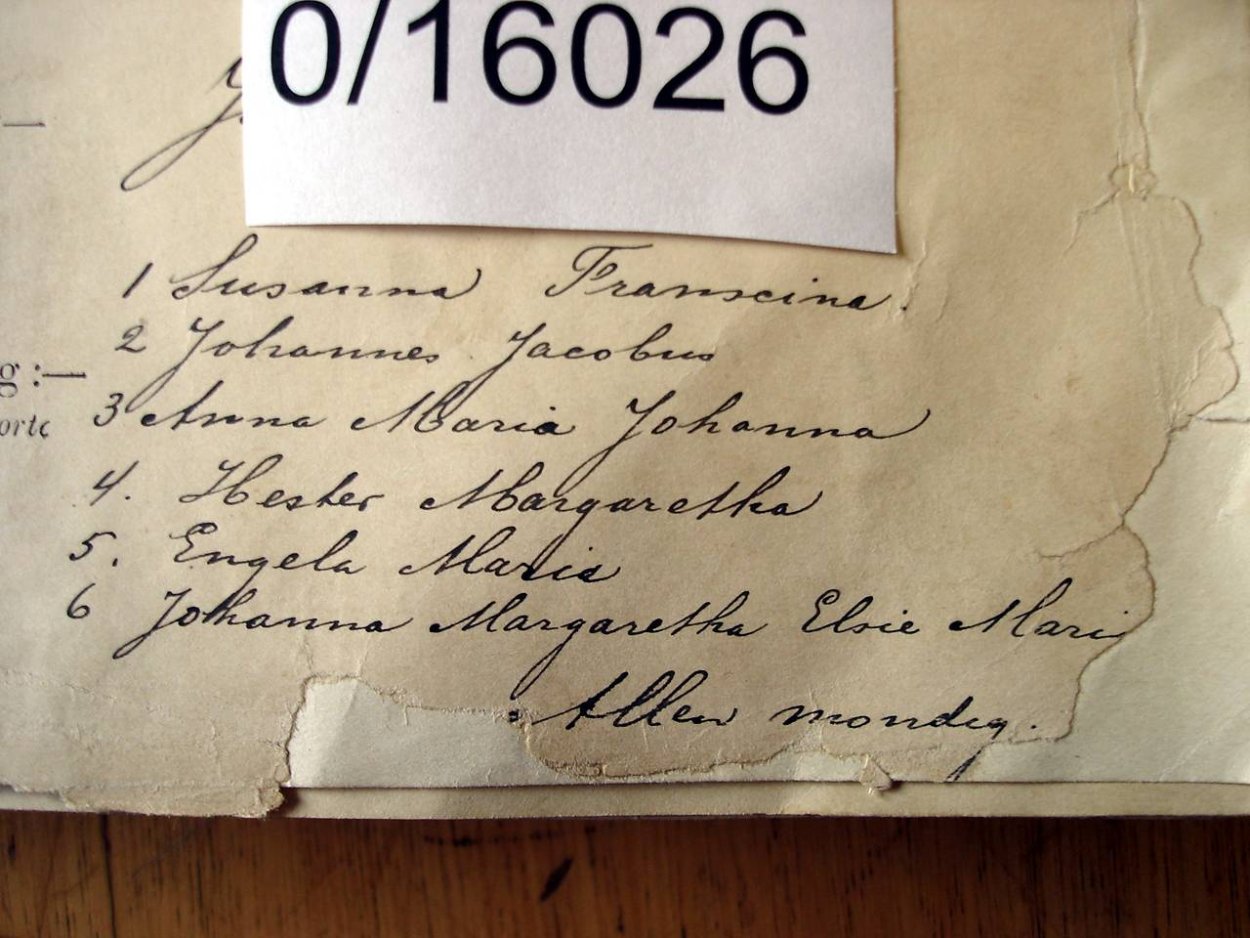 0/16026
1 Susanna Franscina.
2 Johannes Jacobus
g :—
3 Anna Maria Johanna
orte
4. Hester Margaretha
5. Engela Maria
6 Johanna Margaretha Elsie Mari
Allen mondig.